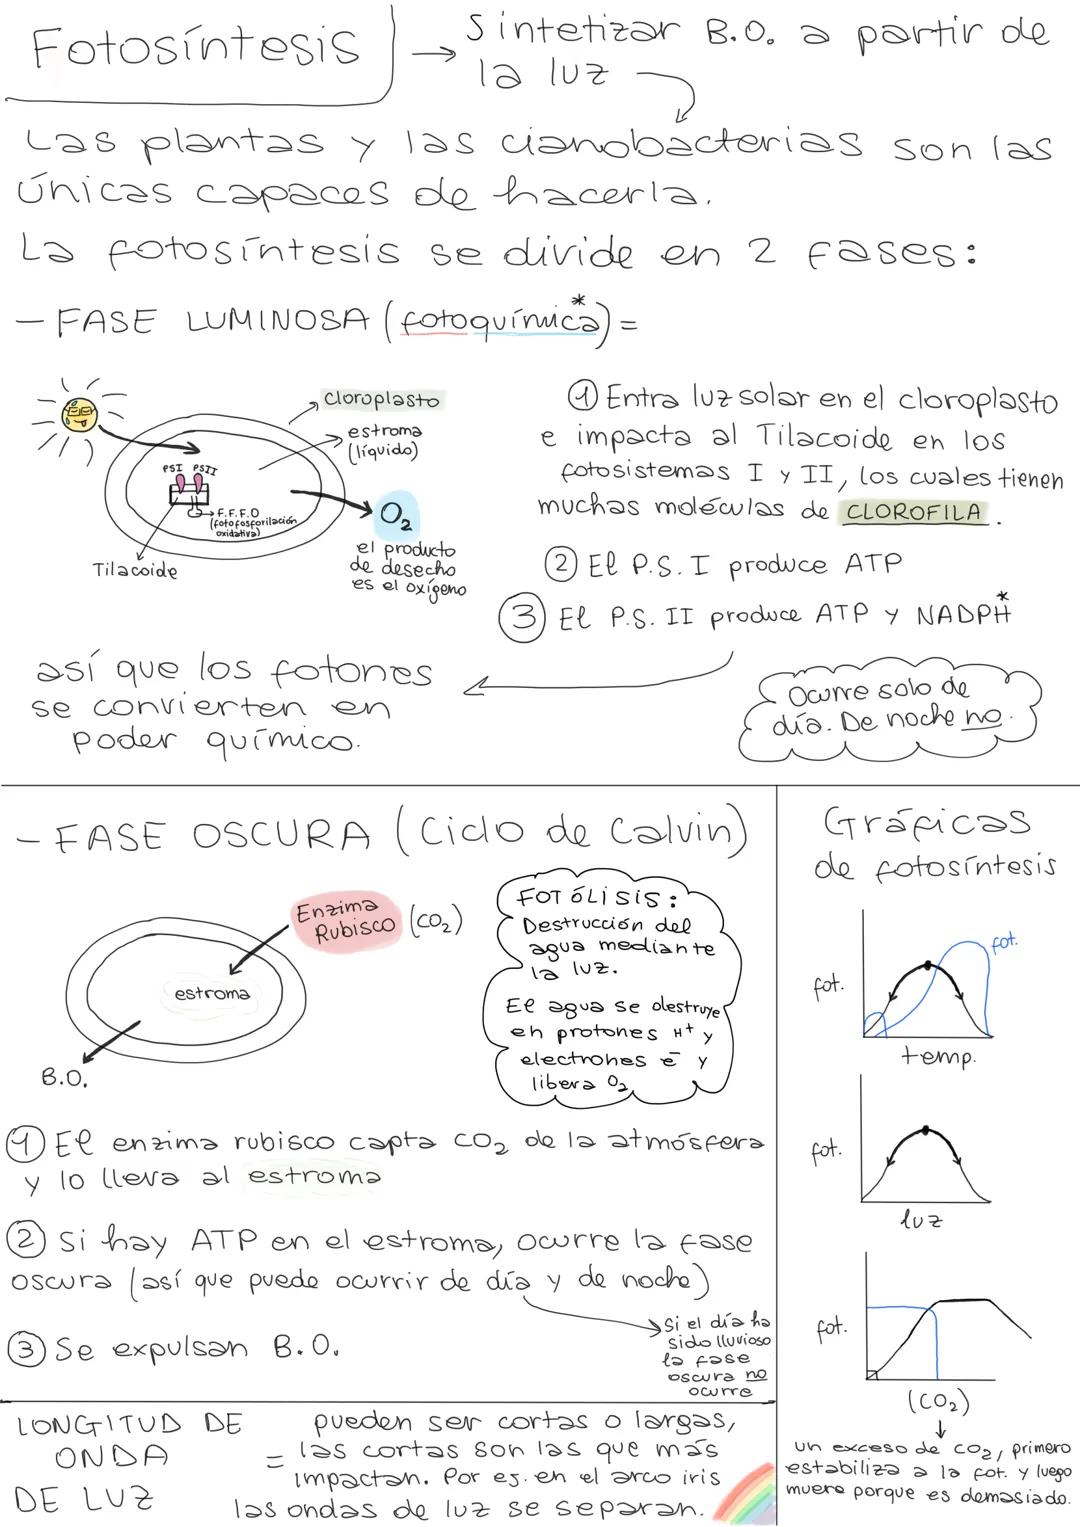 Fotosíntesis → Sintetizar B.O. a partir de
la luz
Las plantas y las cianobacterias son las
únicas capaces de hacerla.
La fotosíntesis se divide en 2 fases:
- FASE LUMINOSA (fotoquímica*) =
cloroplasto
estroma
(líquido)
PSI PSII
F.F.F.O
(fotofosforilación
oxidativa)
Tilacoide
O₂
el producto
de desecho
es el oxígeno
① Entra luz solar en el cloroplasto
e impacta al Tilacoide en los
fotosistemas I y II, los cuales tienen
muchas moléculas de CLOROFILA.
② El P.S. I produce ATP
③ El P.S. II produce ATP y NADPH*
así que los fotones
se convierten en
poder químico.
Ocurre solo de
día. De noche no.
- FASE OSCURA (Ciclo de Calvin)
Enzima
Rubisco (CO₂)
estroma
B.O.
FOTÓLISIS:
Destrucción del
agua mediante
la luz.
El agua se destruye
en protones H⁺ y
electrones e⁻ y
libera O₂
① El enzima rubisco capta CO₂ de la atmósfera
y lo lleva al estroma
② Si hay ATP en el estroma, ocurre la fase
oscura (así que puede ocurrir de día y de noche)
Si el día ha
sido lluvioso
la fase
oscura no
ocurre
③ Se expulsan B.O.
Gráficas
de fotosíntesis
fot.
fot.
temp.
fot.
luz
fot.
(CO₂)
↓
un exceso de CO₂, primero
estabiliza a la fot. y luego
muere porque es demasiado.
LONGITUD DE
ONDA
DE LUZ
= pueden ser cortas o largas,
las cortas son las que más
impactan. Por ej. en el arco iris
las ondas de luz se separan.